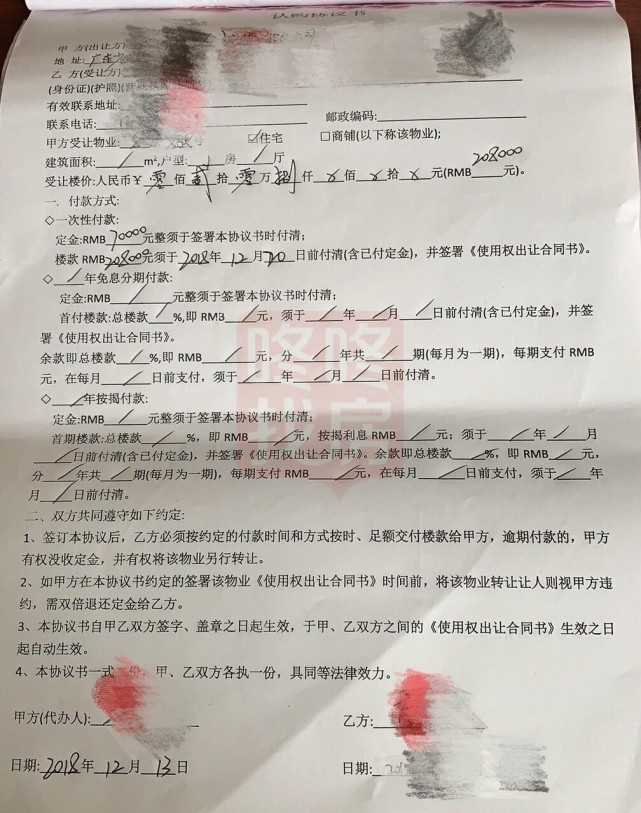 认购协议书
甲 方(出让方):
地 址:广东
乙 方(受让方)
(身份证)(护照)
有效联系地址:
联系电话: 邮政编码:
甲方受让物业: 号 ☑住宅 □商铺(以下称该物业);
建筑面积: / m²,户型: 1 房 / 厅
受让楼价:人民币￥零佰贰拾零万捌仟x佰x拾x元(RMB 208000 元)。
一. 付款方式:
◇一次性付款:
定金:RMB 70000元整须于签署本协议书时付清;
楼款 RMB 208000元须于2018年12月20日前付清(含已付定金)，并签署《使用权出让合同书》。
◇ / 年免息分期付款:
定金:RMB / 元整须于签署本协议书时付清;
首付楼款:总楼款 / %,即 RMB / 元，须于 / 年 / 月 / 日前付清(含已付定金)，并签
署《使用权出让合同书》。
余款即总楼款 / %,即 RMB / 元，分 / 年共 / 期(每月为一期)，每期支付 RMB
元，在每月 / 日前支付，须于 / 年 / 月 / 日前付清。
◇ / 年按揭付款:
定金:RMB / 元整须于签署本协议书时付清;
首期楼款:总楼款 / %，即 RMB / 元，按揭利息 RMB / 元；须于 / 年 / 月
/ 日前付清(含已付定金)，并签署《使用权出让合同书》。余款即总楼款 / %，即 RMB / 元，
分 / 年共 / 期(每月为一期)，每期支付 RMB / 元，在每月 / 日前支付，须于 / 年
月 / 日前付清。
二、双方共同遵守如下约定:
1、签订本协议后，乙方必须按约定的付款时间和方式按时、足额交付楼款给甲方，逾期付款的，甲方
有权没收定金，并有权将该物业另行转让。
2、如甲方在本协议书约定的签署该物业《使用权出让合同书》时间前，将该物业转让让人则视甲方违
约，需双倍退还定金给乙方。
3、本协议书自甲乙双方签字、盖章之日起生效，于甲、乙双方之间的《使用权出让合同书》生效之日
起自动生效。
4、本协议书一式 份，甲、乙双方各执一份，具同等法律效力。
甲方(代办人): 乙方:
日期:2018年12月13日 日期:
咚咚找房